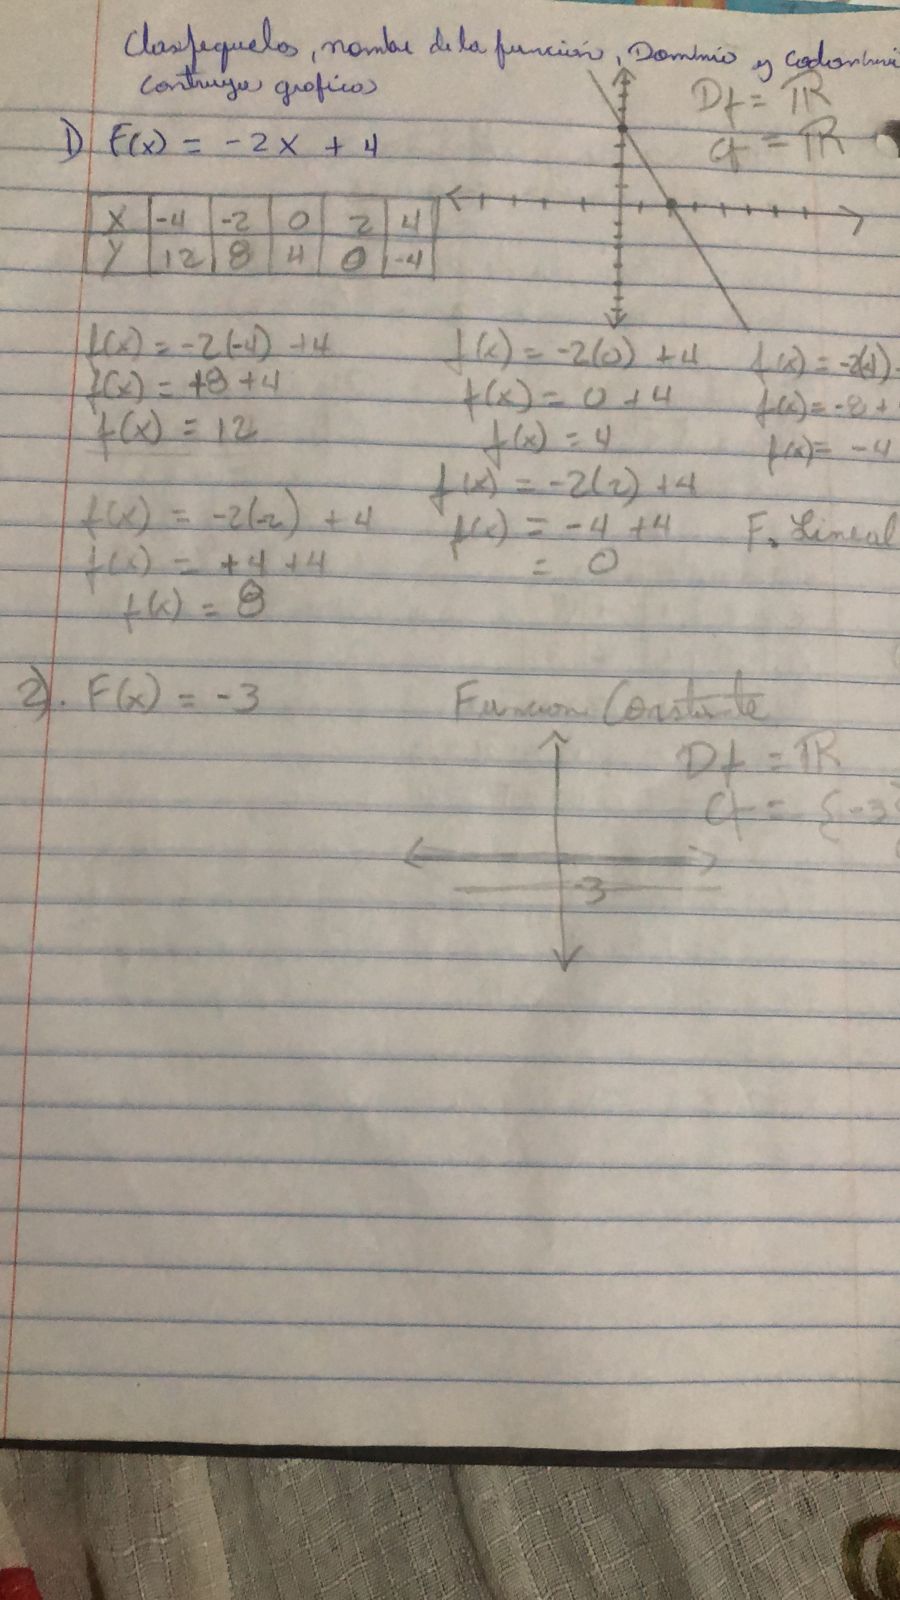 Clasifiquelas, nombre de la función, Dominio y Codomini
contruya grafica
Df = ℝ
cf = ℝ
1) F(x) = -2x + 4
X -4 -2 0 2 4
Y 12 8 4 0 -4
f(x) = -2(-4) +4
f(x) = +8 +4
f(x) = 12
f(x) = -2(-2) + 4
f(x) = +4 +4
f(x) = 8
f(x) = -2(0) +4
f(x) = 0 +4
f(x) = 4
f(x) = -2(2) +4
f(x) = -4 +4
= 0
f(x) = -2(4)
f(x) = -8 +
f(x) = -4
F. Lineal
2). F(x) = -3
Funcion Constante
Df = ℝ
Cf = {-3}
-3